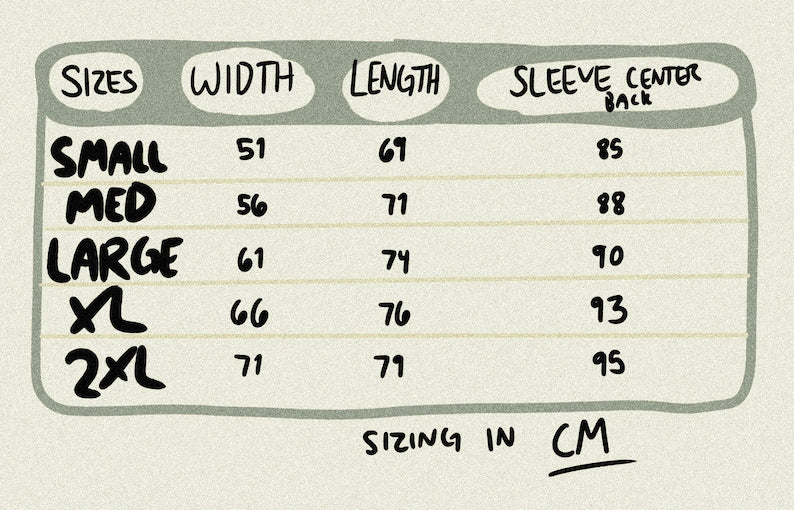 SIZES WIDTH LENGTH SLEEVE CENTER
BACK
SMALL 51 69 85
MED 56 71 88
LARGE 61 74 90
XL 66 76 93
2XL 71 79 95
SIZING IN CM